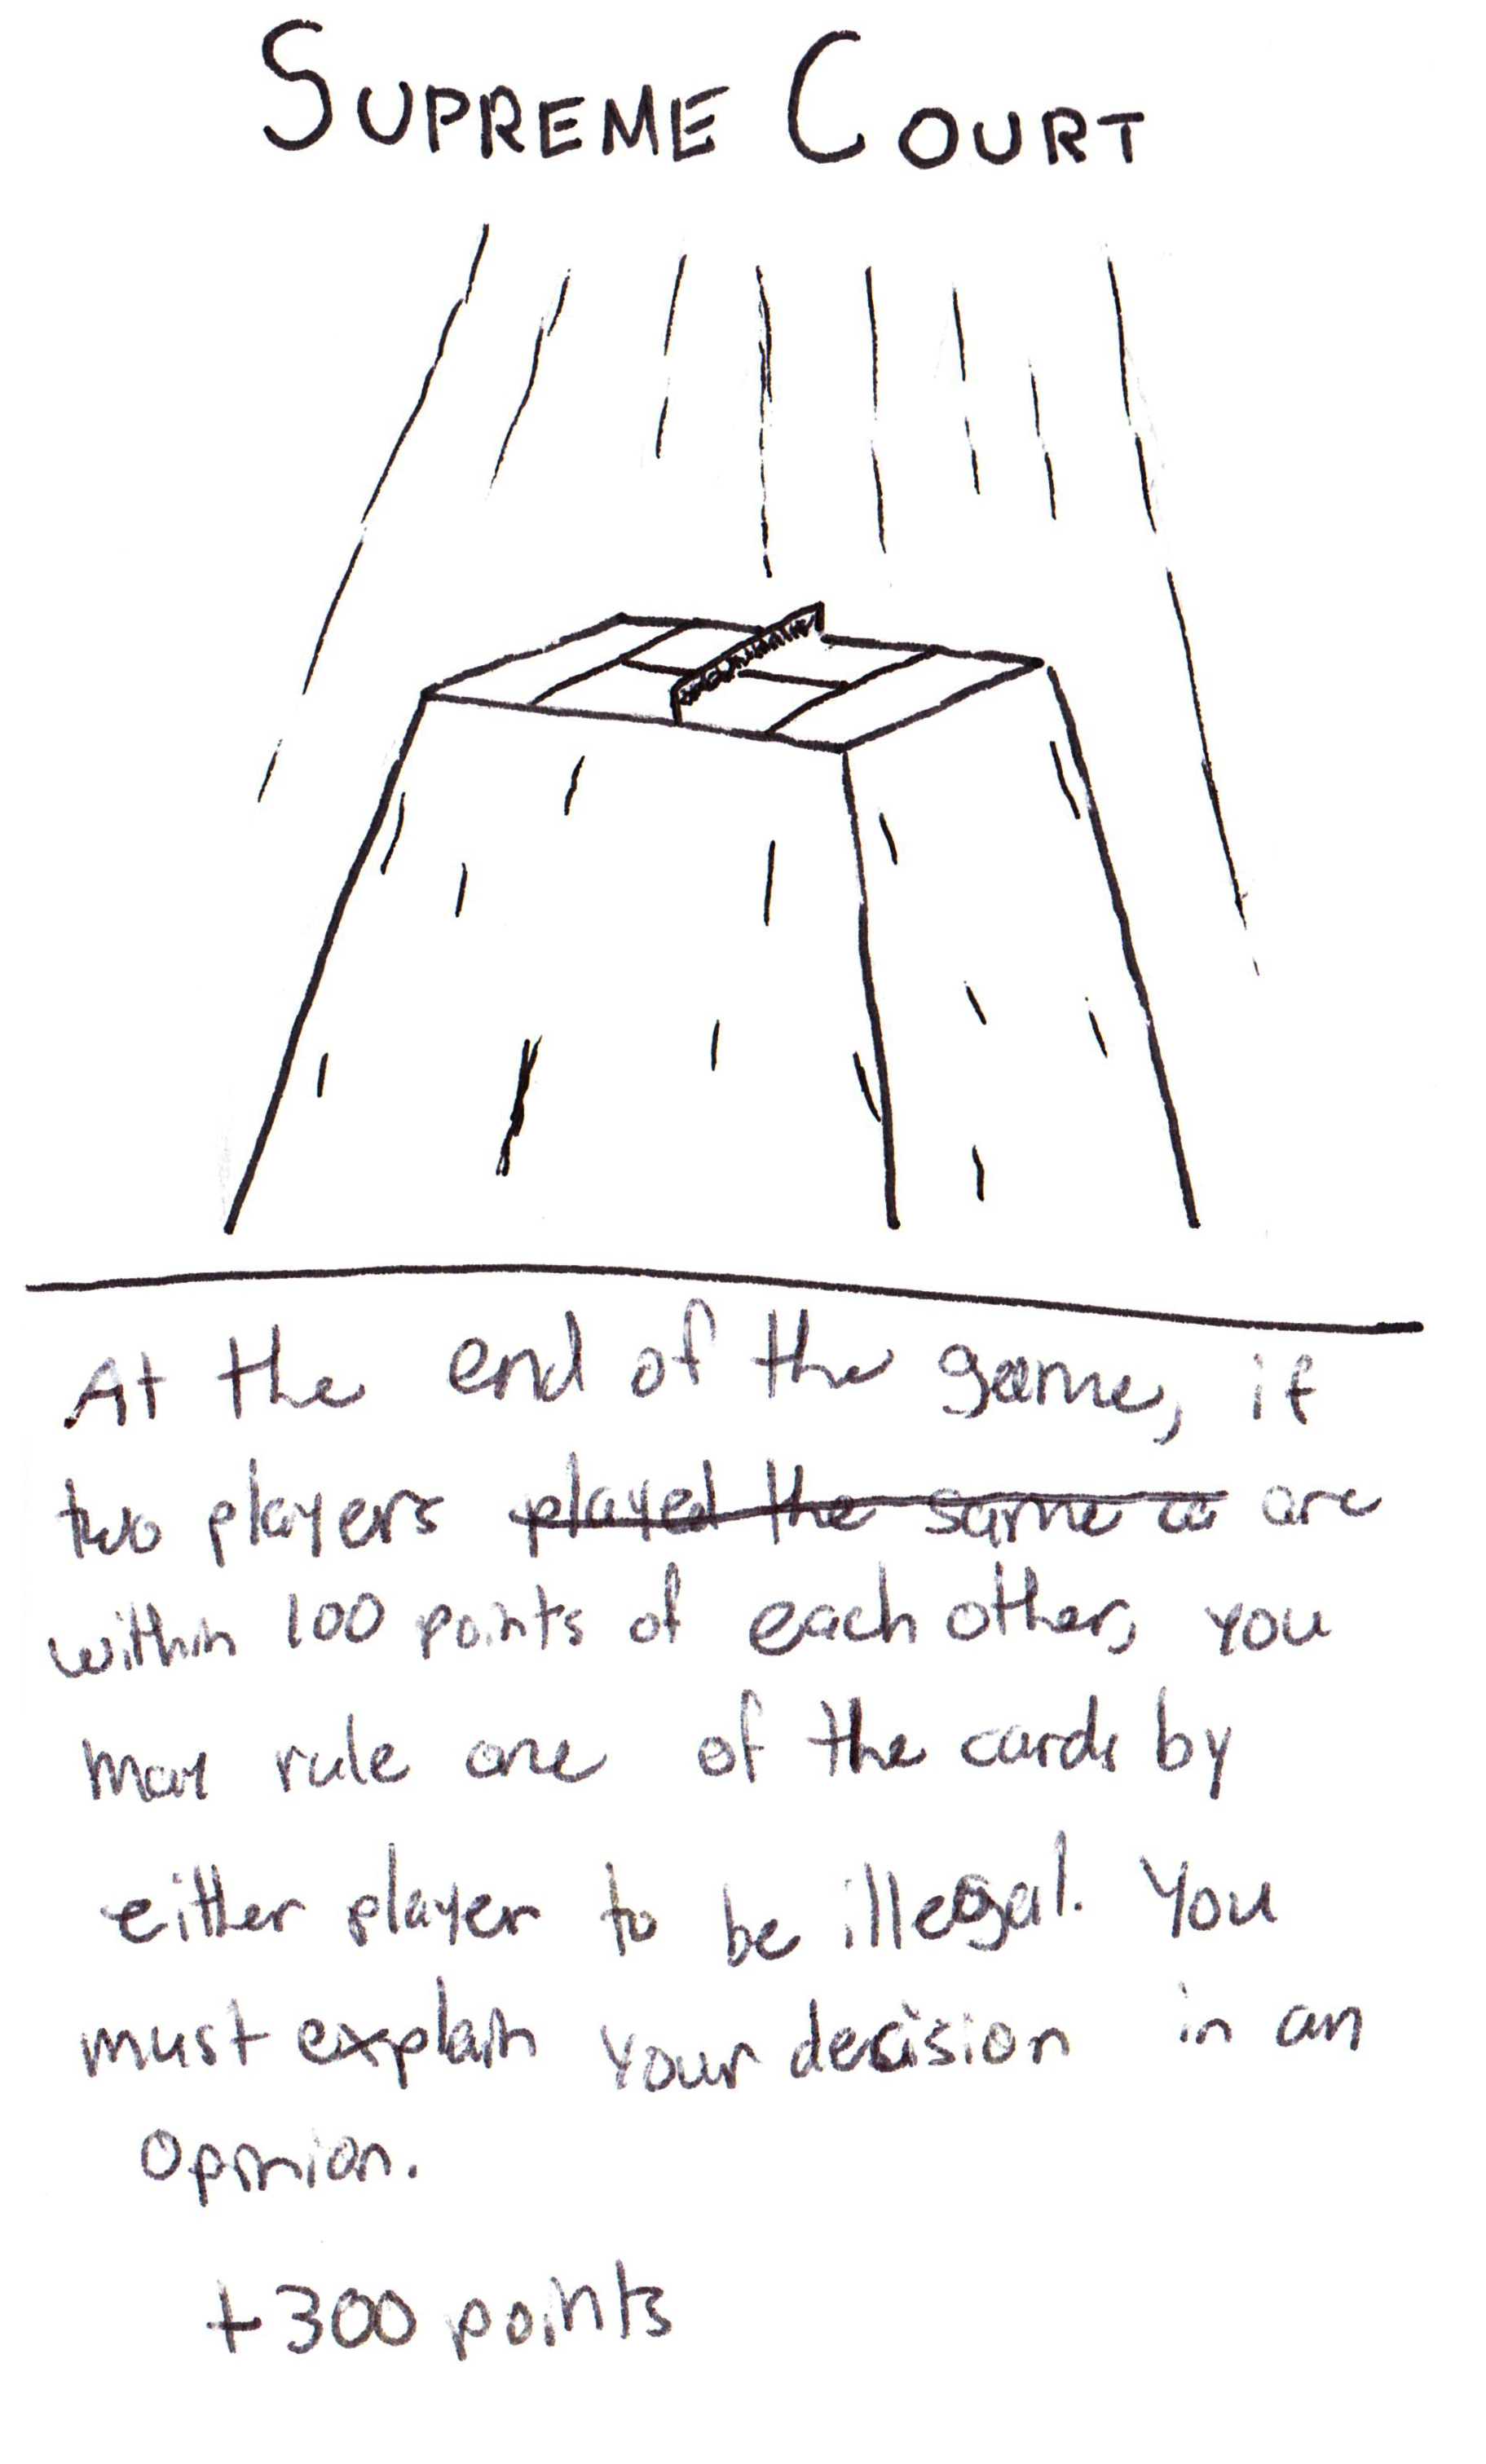 SUPREME COURT
At the end of the game, if
two players played the same ca are
within 100 points of each other, you
may rule one of the cards by
either player to be illegal. You
must explain your decision in an
opinion.
+300 points